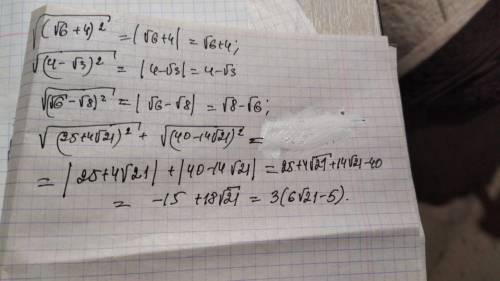 √(√6+4)² = |√6+4| = √6+4;
√(4-√3)² = |4-√3| = 4-√3
√(√6-√8)² = |√6-√8| = √8-√6;
√(25+4√21)² + √(40-14√21)² =
= |25+4√21| + |40-14√21| = 25+4√21+14√21-40
= -15 + 18√21 = 3(6√21-5).